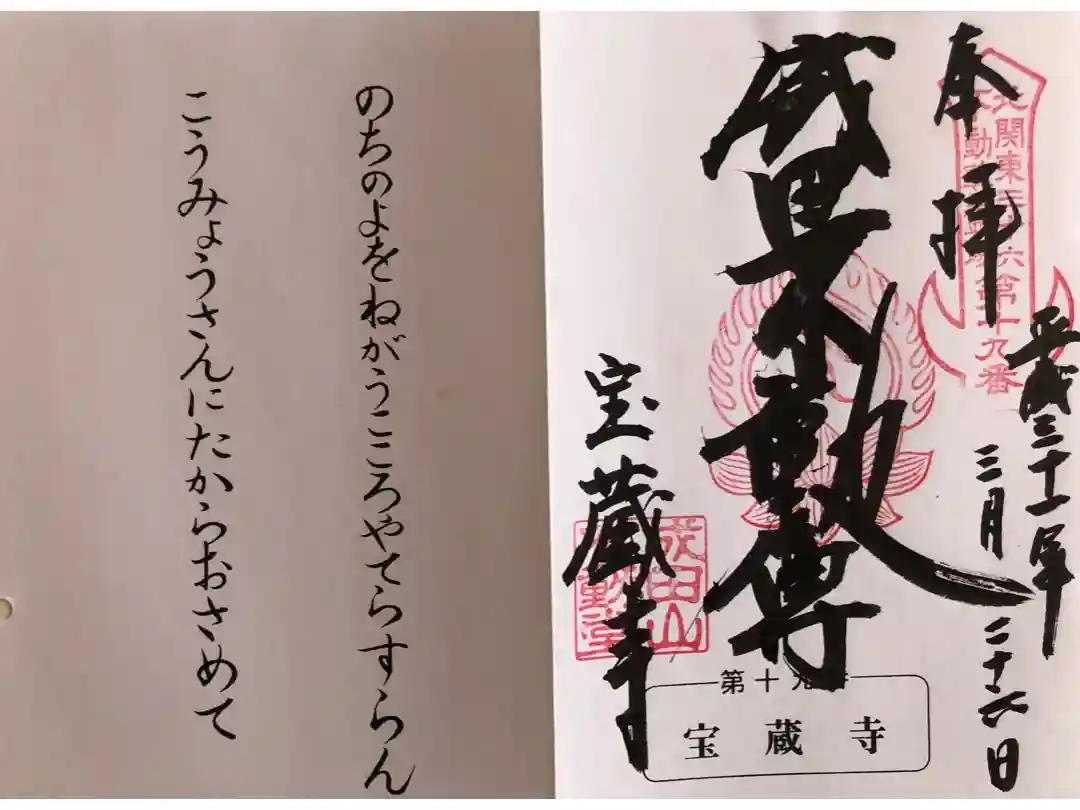 奉拝
平成三十一年
三月二十六日
成田不動尊
宝蔵寺
成田山
第十九番
宝蔵寺
のちのよをねがうこころやてらすらん
こうみょうさんにたからおさめて